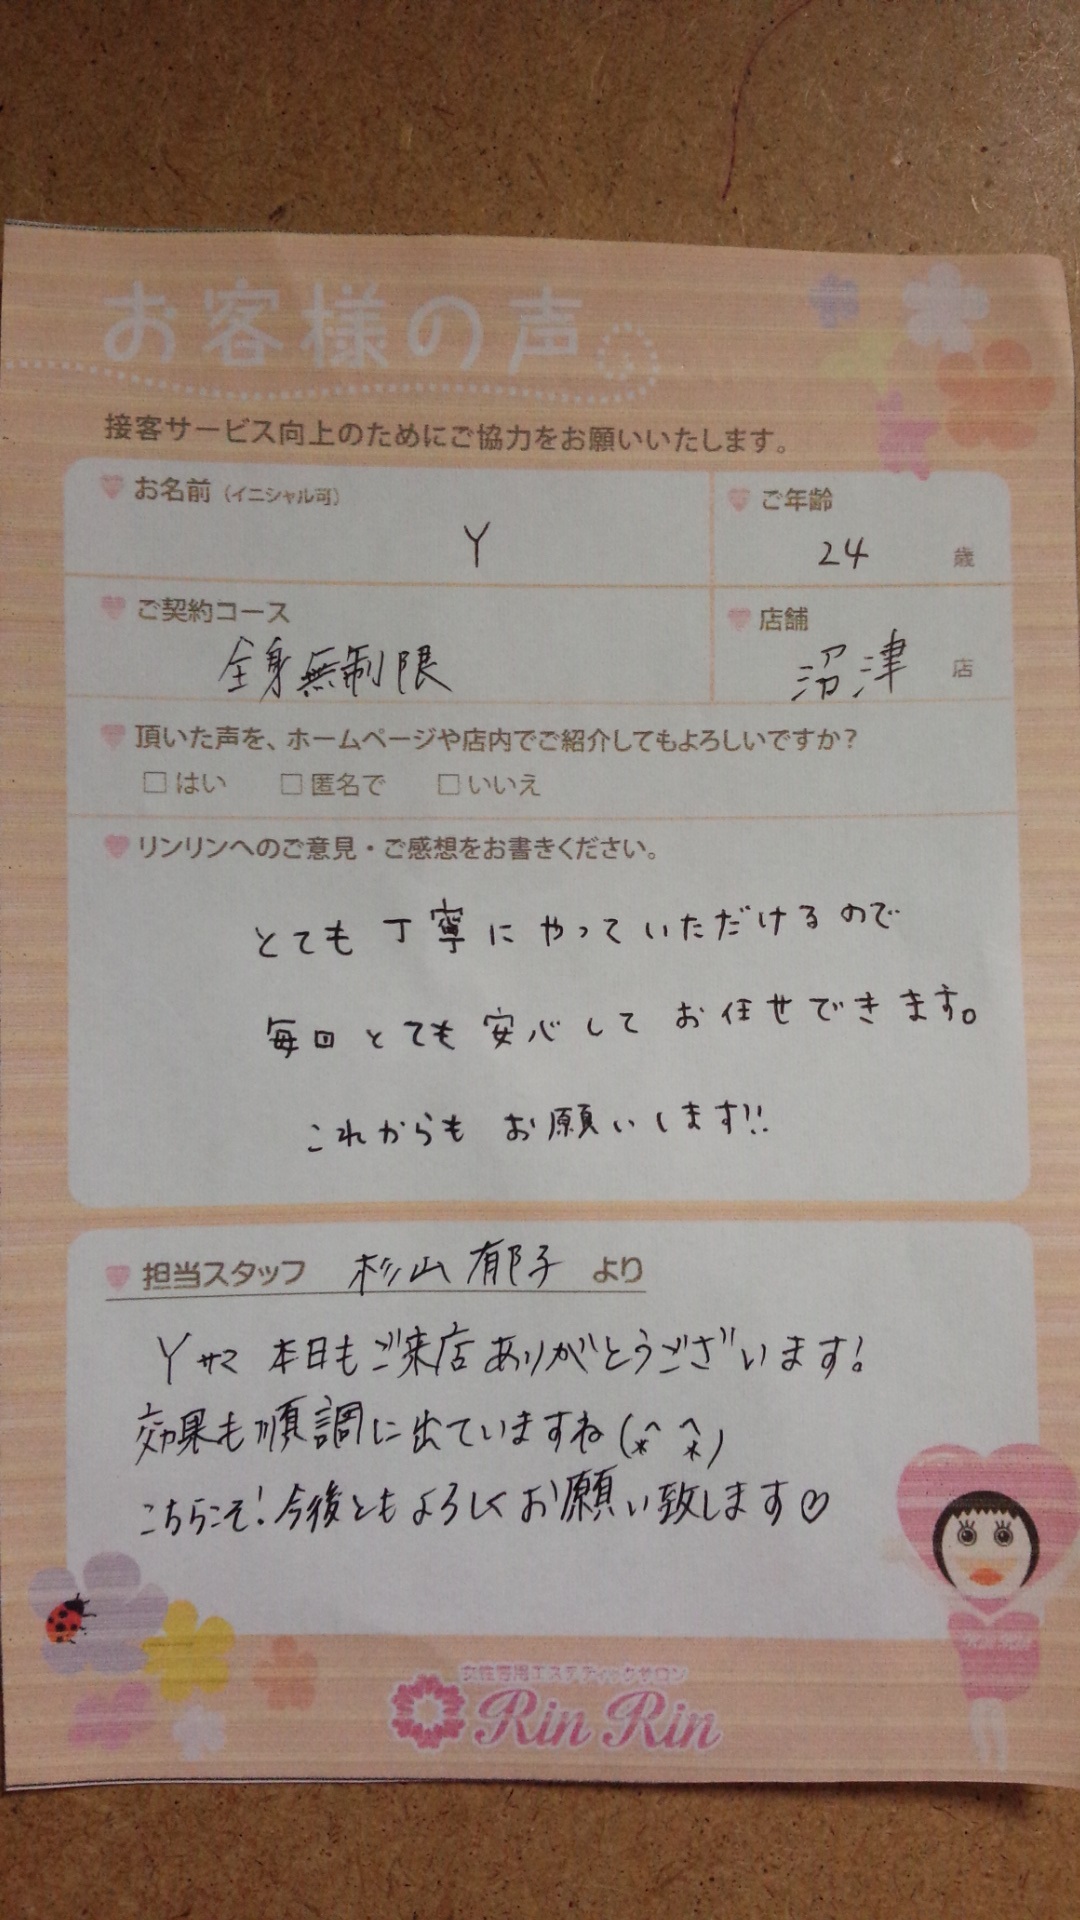 お客様の声
接客サービス向上のためにご協力をお願いいたします。
お名前（イニシャル可）
Y
ご年齢
24 歳
ご契約コース
全身無制限
店舗
沼津 店
頂いた声を、ホームページや店内でご紹介してもよろしいですか？
□はい □匿名で □いいえ
リンリンへのご意見・ご感想をお書きください。
とても丁寧にやっていただけるので
毎回とても安心してお任せできます。
これからもお願いします!!
担当スタッフ 杉山郁子 より
Yサマ 本日もご来店ありがとうございます!
効果も順調に出ていますね(*^^*)
こちらこそ!今後ともよろしくお願い致します♡
女性専用エステティックサロン
Rin Rin